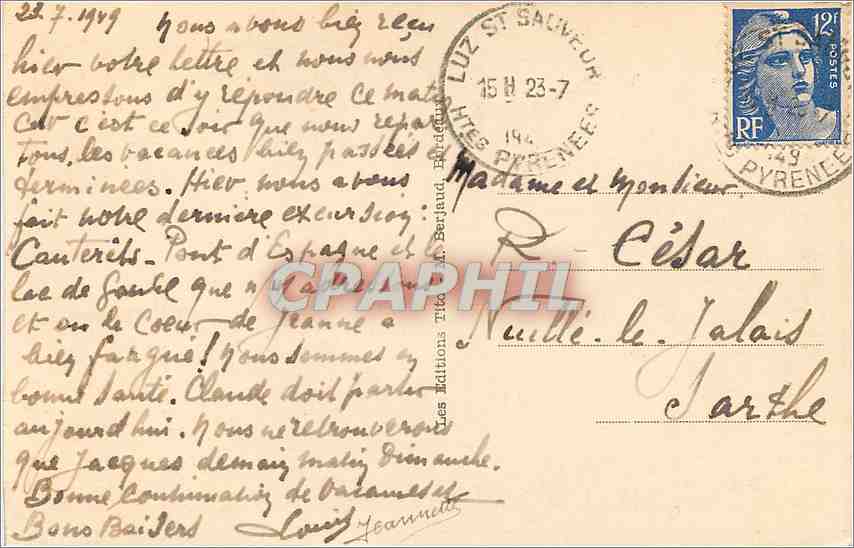 23.7.1949 Nous avons bien reçu
hier votre lettre et nous nous
empressons d'y répondre ce matin
car c'est ce soir que nous repar
tons, les vacances bien passées et
terminées. Hier nous avons
fait notre dernière excursion:
Cauterêts - Pont d'Espagne et le
lac de Gaube que
et le Coeur de Jeanne a
bien fargué! Nous sommes en
bonne santé. Claude doit partir
aujourd'hui. Nous ne retrouverons
que Jacques demain matin Dimanche.
Bonne Continuation de vacances et
Bons Baisers Louis Jeannette
Les Editions Tito M. Berjaud, Bordeaux
LUZ ST SAUVEUR
15 H 23-7
194
HTES PYRENEES
12F
POSTES
RF
149
PYRENEES
Madame et Monsieur
R. César
Nuillé-le-Jalais
Sarthe
CPAPHIL